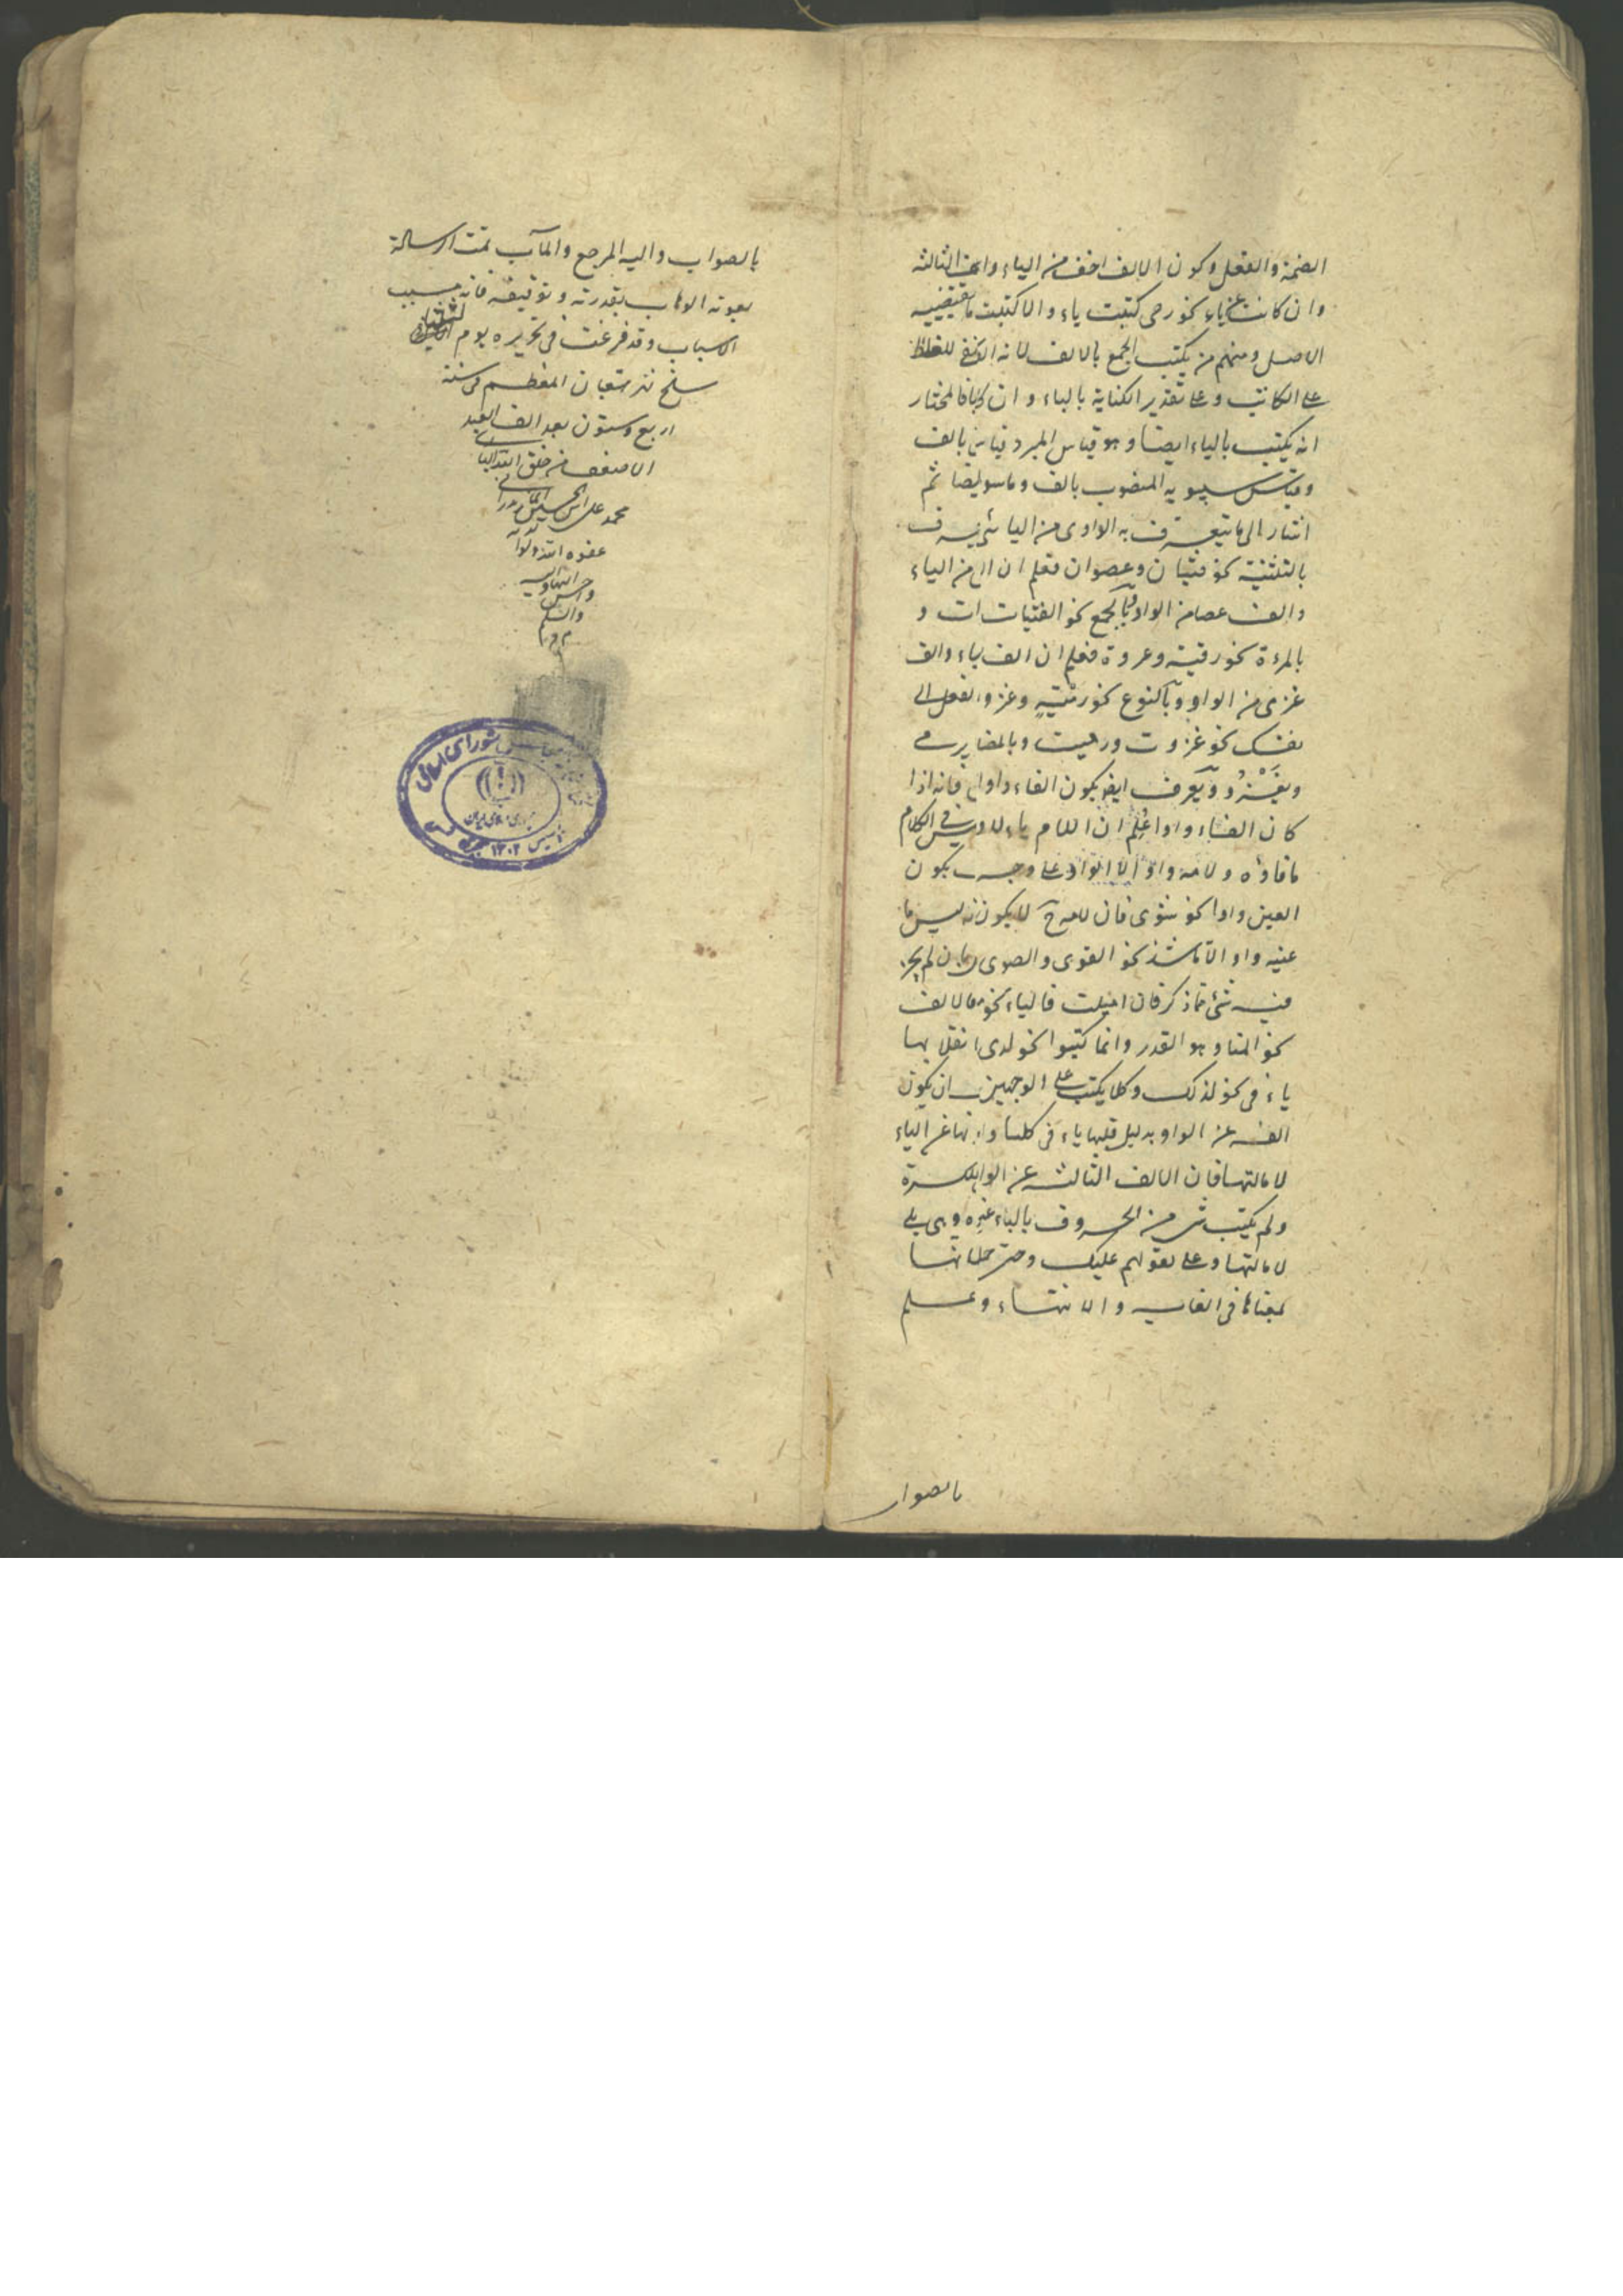 الضمة والفعل وكون الالف اخف من الياء واما الثالثة
وان كانت عن ياء نحو رحى كتبت ياء والا كتبت ما تقتضيه
الاصل ومنهم من يكتب الجميع بالالف لانه انفى للغلط
على الكاتب وعلى تقدير الكتابة بالياء وان كان فالمختار
انه يكتب بالياء ايضا وهو قياس المبرد قياس بالف
وقياس سيبويه المنصوب بالف وما سواه ايضا ثم
اشار الى ما يتعرف به الواوى من اليائى يتعرف
بالتثنية نحو فتيان وعصوان فعلم ان الف من الياء
والف عصا من الواو وبالجمع نحو الفتيات و
بالمرة نحو رمية وغزوة فعلم ان الف ياء والف
غزى من الواو وبالنوع نحو رِمْيَةٍ وغزوة والفعل الى
نفسك نحو غزوت ورميت وبالمضارع يرمى
ويَغْزُو ويعرف ايضا بكون الفاء واوا فانه اذا
كان الفاء واوا عُلِمَ ان اللام ياء اذ ليس فى الكلام
ما فاؤه ولامه واو الا الواو على وجه يكون
العين واوا نحو شوى فان لامه لا يكون ليس ما
عينه واو الا ما شذ نحو القوى والصوى وان لم يجر
فيه شئ مما ذكر فان اميلت فالياء نحو فالالف
نحو المنا وهو القدر وانما كتبوا نحو لدى انقلابها
ياء فى نحو لديك وكلا يكتب على الوجهين ان يكون
الفه عن الواو بدليل قلبها ياء فى كلتا وانها عن الياء
لامالتها فان الالف الثالث عن الواو بكسرة
ولم يكتب شئ من الحروف بالياء غيره وهى بلى
لامالتها وعلى لقولهم عليك وحتى حملا لها
بمعناها فى الغاية والانتهاء وعلم
بالصواب
بالصواب واليه المرجع والمآب تمت الرسالة
بعونه الوهاب بقدرته وتوفيقه فانه مسبب
الاسباب وقد فرغت فى تحريره يوم
سلخ شهر شعبان المعظم فى سنة
اربع وستون بعد الف العبد
الاضعف من خلق الله البارى
محمد على
عفوه الله
واحسن اليهما واليه
والسلم
م م م
شوراى اسلامى
جمهورى اسلامى ايران
تاسيس ١٣٠٢